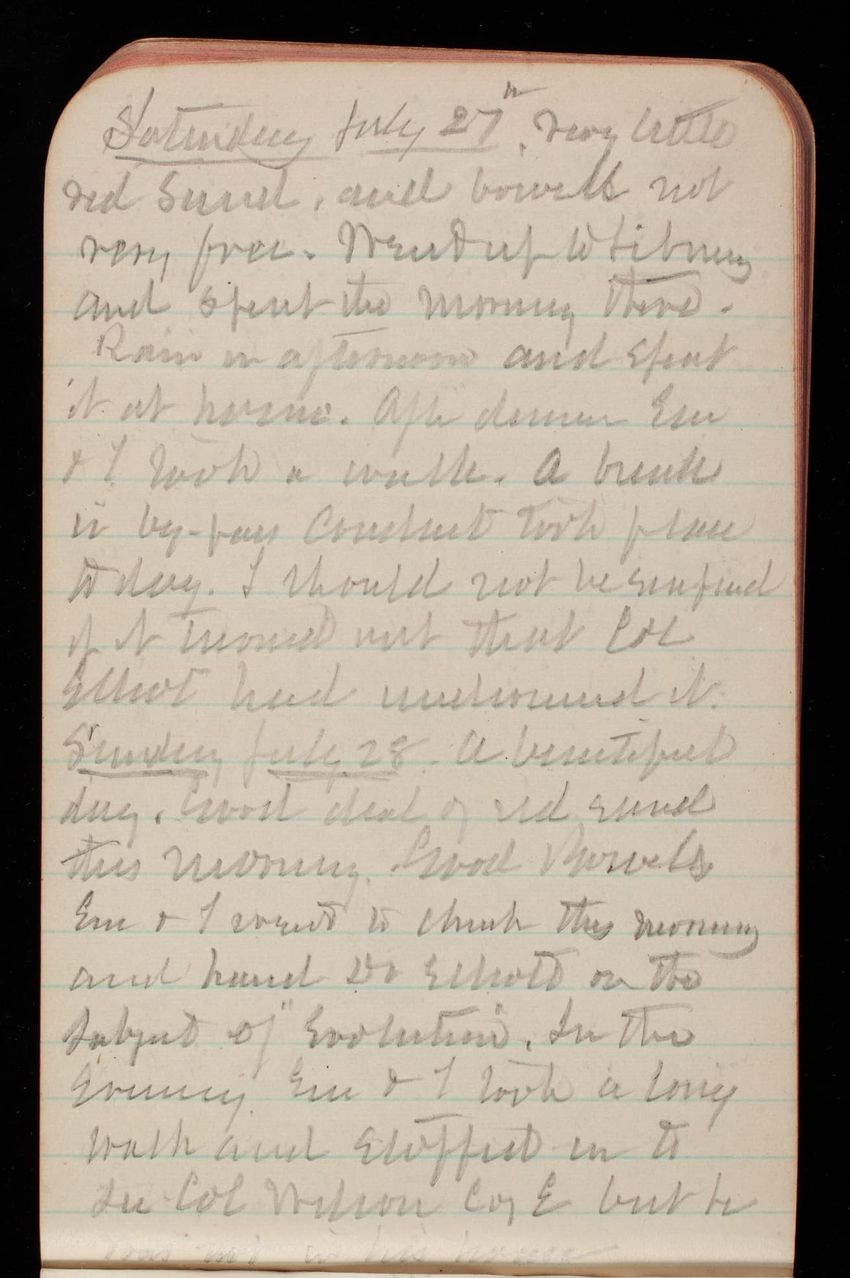 Saturday July 27th, very little
red sand, and bowels not
very free. Went up to Library
and spent the morning there.
Rain in afternoon and spent
it at home. After dinner Em
& I took a walk. A break
in by-pass Conduit took place
to day. I should not be surprised
if it turned out that Col
Elliot had it.
Sunday July 28. A beautiful
day. Good deal of red sand
this morning. Good Bowels
Em & I went to church this morning
and heard Dr Elliott on the
subject of "Evolution". In the
Evening Em & I took a long
walk and stopped in to
see Col Wilson Cor E but he
was not in his house